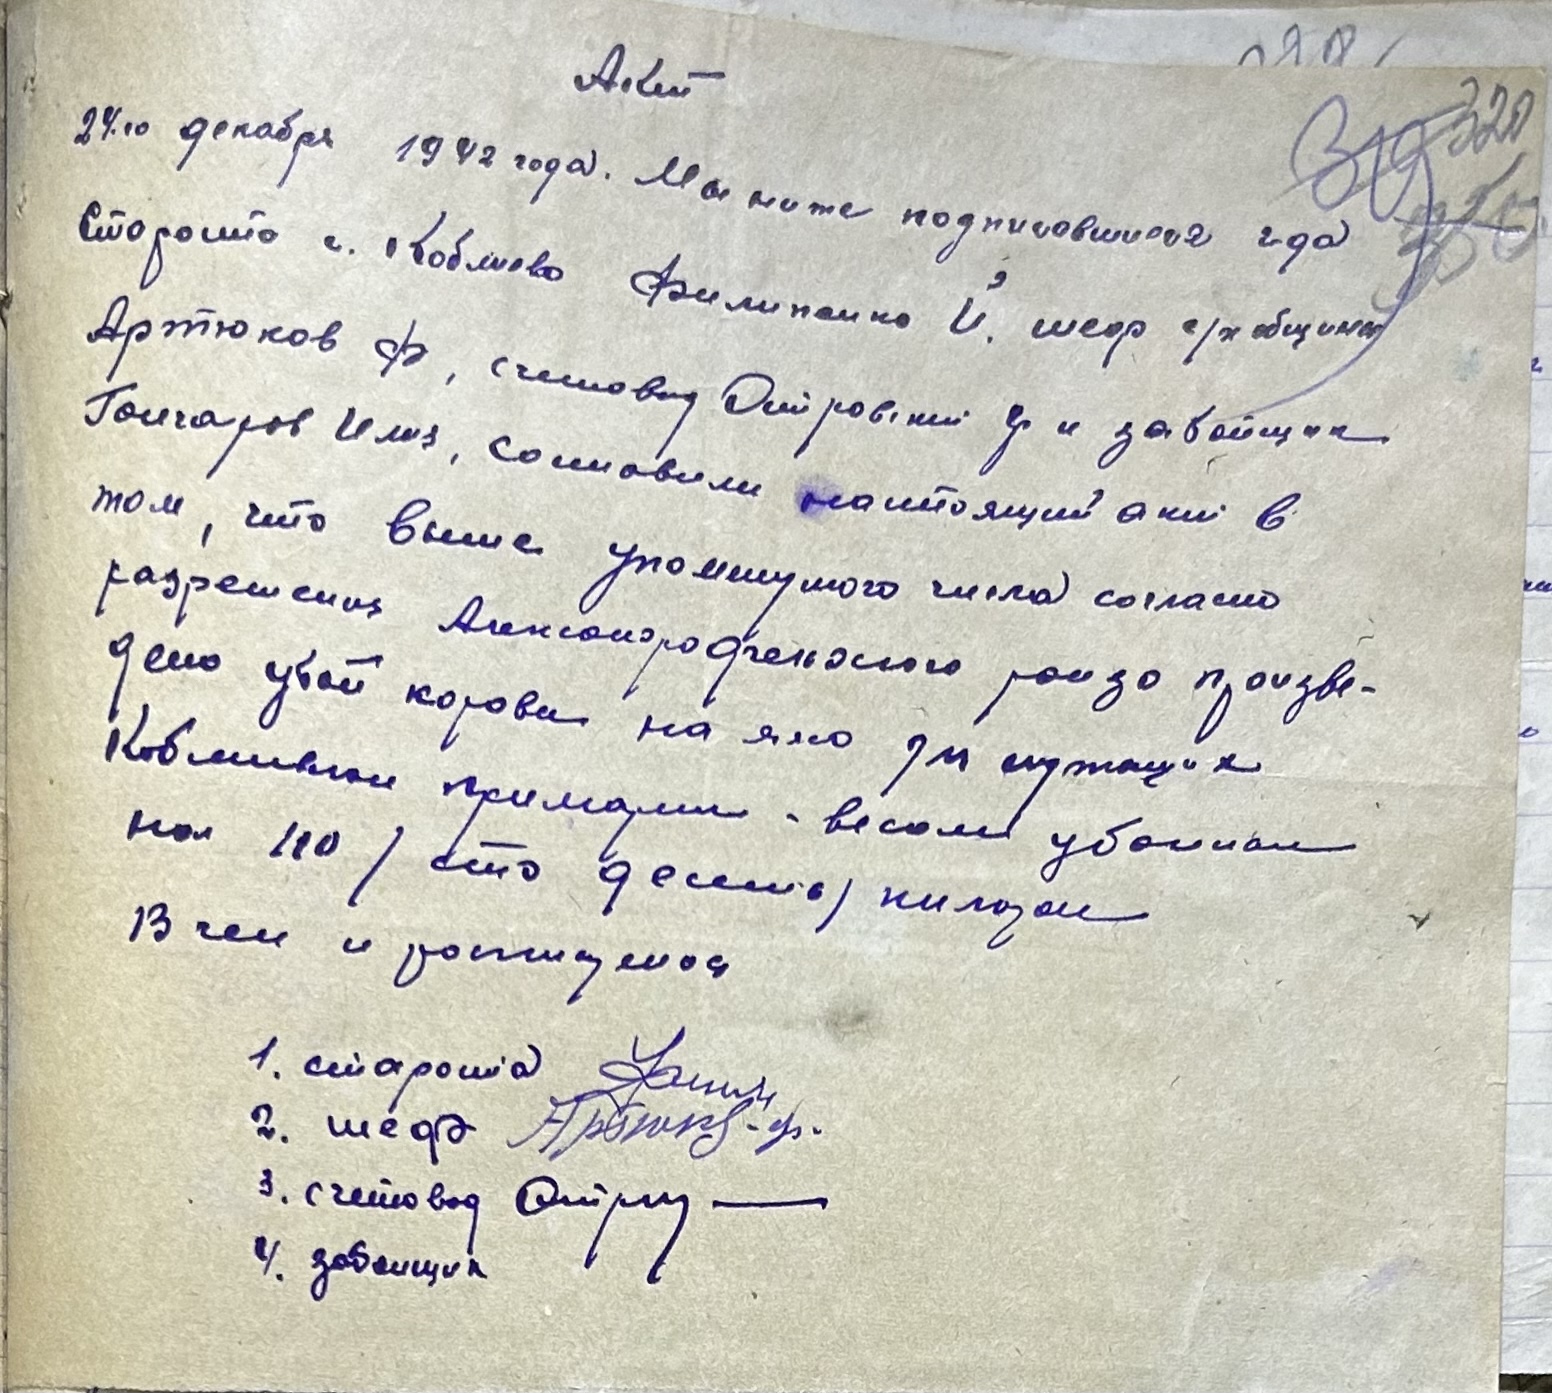 Акт
320
24го декабря 1942 года. Мы ниже подписавшиеся
Староста с. Коблиево Филипенко И. шеф с/х общины
Артюков Ф, счетовод Островский и забойщик
Гончаров Илия, составили настоящий акт в
том, что выше упомянутого числа согласно
разрешения Александродченского райзо произве-
дено убой коровы на мясо для служащих
Коблиевской примарии - весом убоиной
110 /сто десять/ килогром
В чем и росписуемся
1. староста
2. шеф Артюков. ф.
3. счетовод
4. забоищик